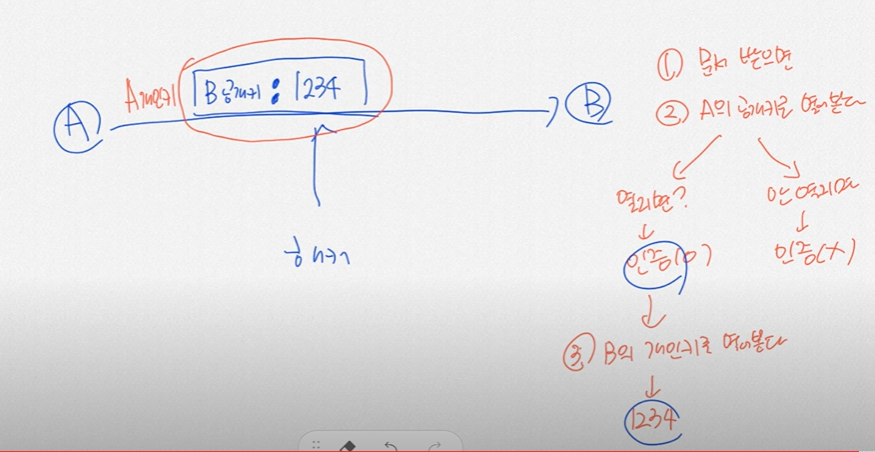 A개인키
B공개키 : 1234
A
B
공개키
① 문서 받으면
② A의 공개키로 열어본다
열리면?
안열리면
인증(O)
인증(X)
③ B의 개인키로 열어본다
1234